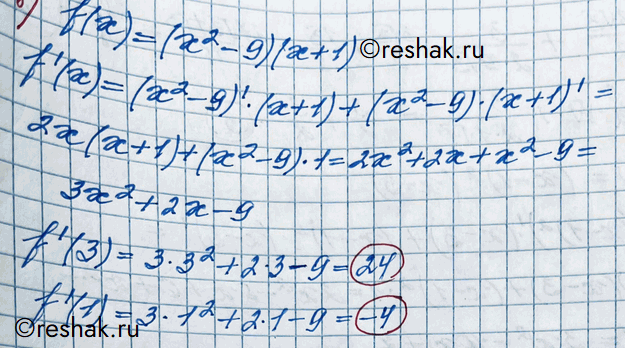 б)
f(x)=(x²-9)(x+1)
©reshak.ru
f'(x)=(x²-9)'·(x+1)+(x²-9)·(x+1)'=
2x(x+1)+(x²-9)·1=2x²+2x+x²-9=
3x²+2x-9
f'(3)=3·3²+2·3-9=24
f'(1)=3·1²+2·1-9=-4
©reshak.ru